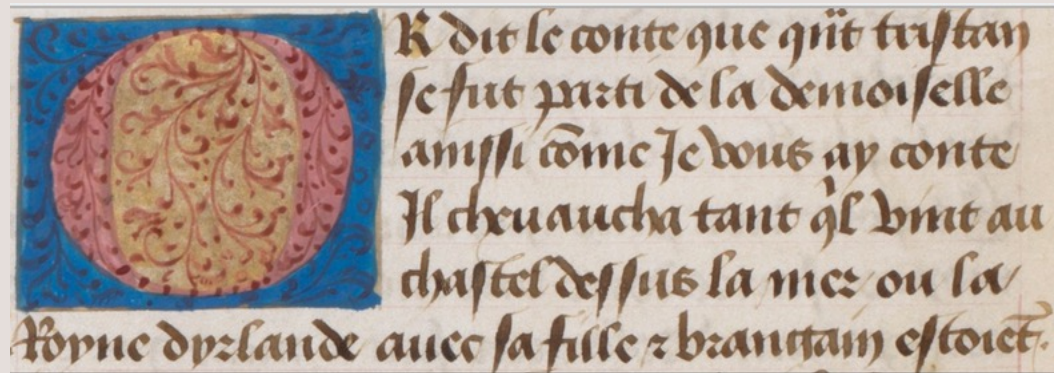 OR dit le conte que qn̄t tristan
se fut parti de la demoiselle
ainssi cōme Je vous ay conte
Il cheuaucha tant q̄l vint au
chastel dessus la mer ou la
Royne dyrlande auec sa fille ⁊ brangain estoiēt.